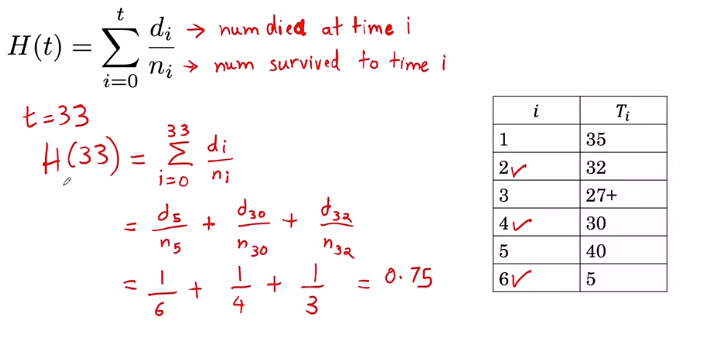 H(t) = \sum_{i=0}^{t} \frac{d_i}{n_i} → num died at time i
→ num survived to time i
t=33
H(33) = \sum_{i=0}^{33} \frac{d_i}{n_i}
= \frac{d_5}{n_5} + \frac{d_{30}}{n_{30}} + \frac{d_{32}}{n_{32}}
= \frac{1}{6} + \frac{1}{4} + \frac{1}{3} = 0.75
i T_i
1 35
2✓ 32
3 27+
4✓ 30
5 40
6✓ 5